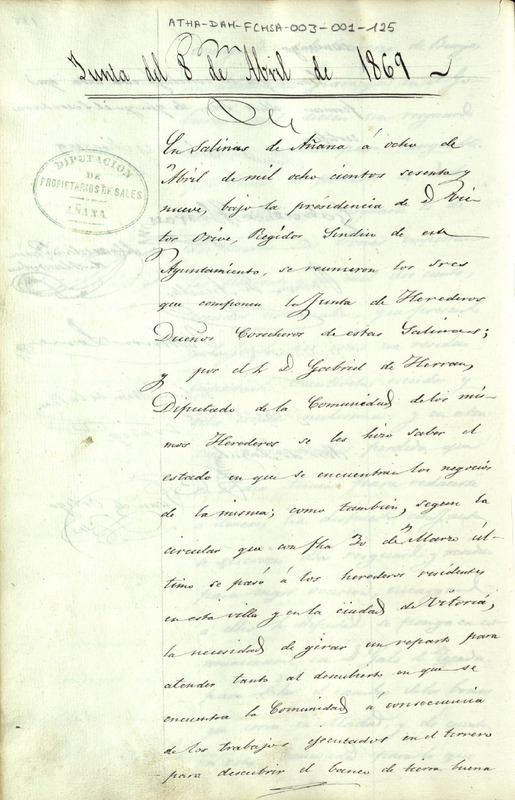 ATHA-DAH-FCHSA-003-001-125
Junta del 8 de Abril de 1869
DIPUTACION
DE
PROPIETARIOS DE SALES.
AÑANA
En Salinas de Añana á ocho de
Abril de mil ocho cientos sesenta y
nueve, bajo la presidencia de D. Vic-
tor Orive, Regidor Síndico de este
Ayuntamiento, se reunieron los Sres
que componen la Junta de Herederos
Dueños Cosecheros de estas Salinas;
y por el Sr. D. Gabriel de Herran,
Diputado de la Comunidad de los mis-
mos Herederos se les hizo saber el
estado en que se encuentran los negocios
de la misma; como tambien, segun la
circular que con fha 30 de Marzo úl-
timo se pasó á los herederos residentes
en esta villa y en la ciudad de Vitoria,
la necesidad de girar un reparto para
atender tanto al descubierto en que se
encuentra la Comunidad á consecuencia
de los trabajos ejecutados en el terreno
para descubrir el banco de tierra buena